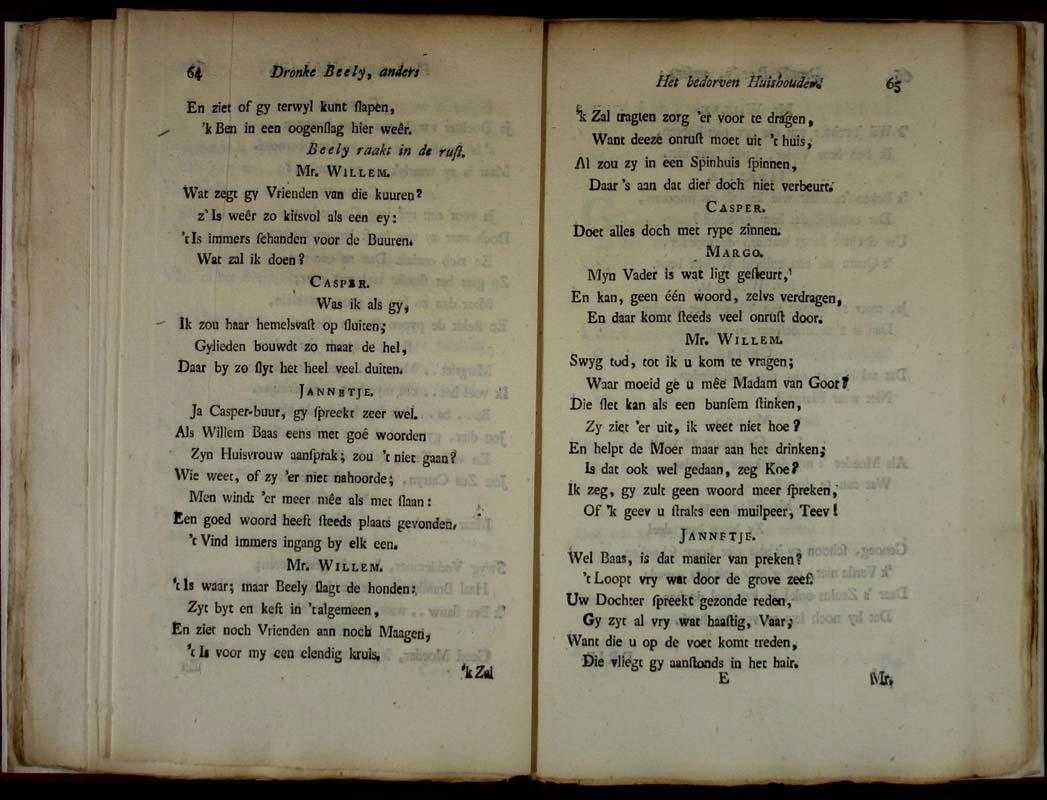 64 Dronke Beely, anders
En ziet of gy terwyl kunt ſlapen,
'k Ben in een oogenſlag hier weêr.
Beely raakt in de ruſt.
Mr. WILLEM.
Wat zegt gy Vrienden van die kuuren?
z' Is weêr zo kitsvol als een ey:
't Is immers ſchanden voor de Buuren.
Wat zal ik doen?
CASPER.
Was ik als gy,
Ik zou haar hemelsvaſt op ſluiten;
Gylieden bouwdt zo maar de hel,
Daar by zo ſlyt het heel veel duiten.
JANNETJE.
Ja Casper-buur, gy ſpreekt zeer wel.
Als Willem Baas eens met goê woorden
Zyn Huisvrouw aanſprak; zou 't niet gaan?
Wie weet, of zy 'er niet nahoorde;
Men windt 'er meer mêe als met ſlaan:
Een goed woord heeft ſteeds plaats gevonden,
't Vind immers ingang by elk een.
Mr. WILLEM.
't Is waar; maar Beely ſlagt de honden:
Zyt byt en keft in 'talgemeen,
En ziet noch Vrienden aan noch Maagen,
't Is voor my een elendig kruis.
'k Zal
Het bedorven Huishouden. 65
'k Zal tragten zorg 'er voor te dragen,
Want deeze onruſt moet uit 't huis,
Al zou zy in een Spinhuis ſpinnen,
Daar 's aan dat dier doch niet verbeurt.
CASPER.
Doet alles doch met rype zinnen.
MARGO.
Myn Vader is wat ligt geſteurt,
En kan, geen één woord, zelvs verdragen,
En daar komt ſteeds veel onruſt door.
Mr. WILLEM.
Swyg tod, tot ik u kom te vragen;
Waar moeid ge u mêe Madam van Goor?
Die ſlet kan als een bunſem ſtinken,
Zy ziet 'er uit, ik weet niet hoe?
En helpt de Moêr maar aan het drinken;
Is dat ook wel gedaan, zeg Koe?
Ik zeg, gy zult geen woord meer ſpreken,
Of 'k geev u ſtraks een muilpeer, Teev!
JANNETJE.
Wel Baas, is dat manier van preken?
't Loopt vry wat door de grove zeef.
Uw Dochter ſpreekt gezonde reden,
Gy zyt al vry wat haaſtig, Vaar;
Want die u op de voet komt treden,
Die vliegt gy aanſtonds in het hair.
E Mr.